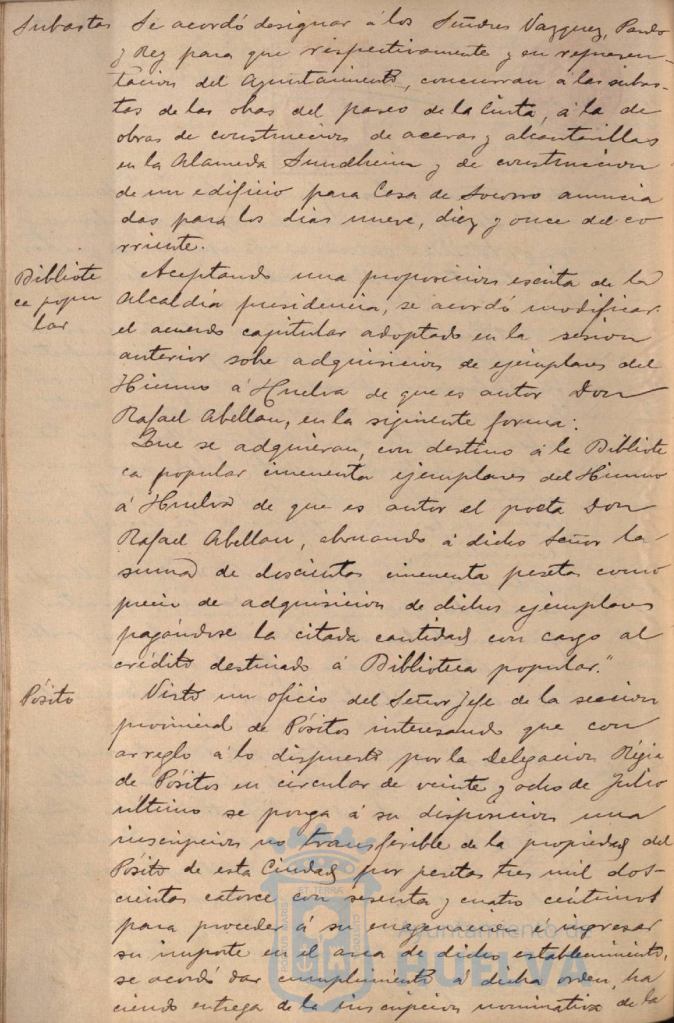 Subastas Se acordó designar á los Señores Vazquez, Pardo
y Rey para que respectivamente y en represen-
tacion del Ayuntamiento, concurran á las subas-
tas de las obras del paseo de la Cinta, á la de
obras de construccion de aceras y alcantarillas
en la Alameda Sundheim y de construccion
de un edificio para Casa de Socorro anuncia
das para los dias nueve, diez y once del co
rriente.
Bibliote
ca popu
lar
Aceptando una proposicion escrita de la
Alcaldía presidencia, se acordó modificar
el acuerdo capitular adoptado en la sesion
anterior sobre adquisicion de ejemplares del
Himno á Huelva de que es autor Don
Rafael Abellan, en la siguiente forma:
Que se adquieran, con destino á la Bibliote
ca popular cincuenta ejemplares del Himno
á Huelva de que es autor el poeta Don
Rafael Abellan, abonando á dicho Señor la
suma de doscientas cincuenta pesetas como
precio de adquisicion de dichos ejemplares
pagándose la citada cantidad con cargo al
crédito destinado á Biblioteca popular."
Pósito
Visto un oficio del Señor Jefe de la seccion
provincial de Pósitos interesando que con
arreglo á lo dispuesto por la Delegacion Régia
de Pósitos en circular de veinte y ocho de Julio
ultimo se ponga á su disposicion una
inscripcion no transferible de la propiedad del
Pósito de esta Ciudad por pesetas tres mil dos-
cientas catorce con sesenta y cuatro céntimos
para proceder á su enagenacion é ingresar
su importe en el arca de dicho establecimiento,
se acordó dar cumplimiento á dicha orden, ha
ciendo entrega de la inscripcion nominativa de la
PORTUS MARIS ET TERRA CUSTODIA
Ayuntamiento de
HUELVA